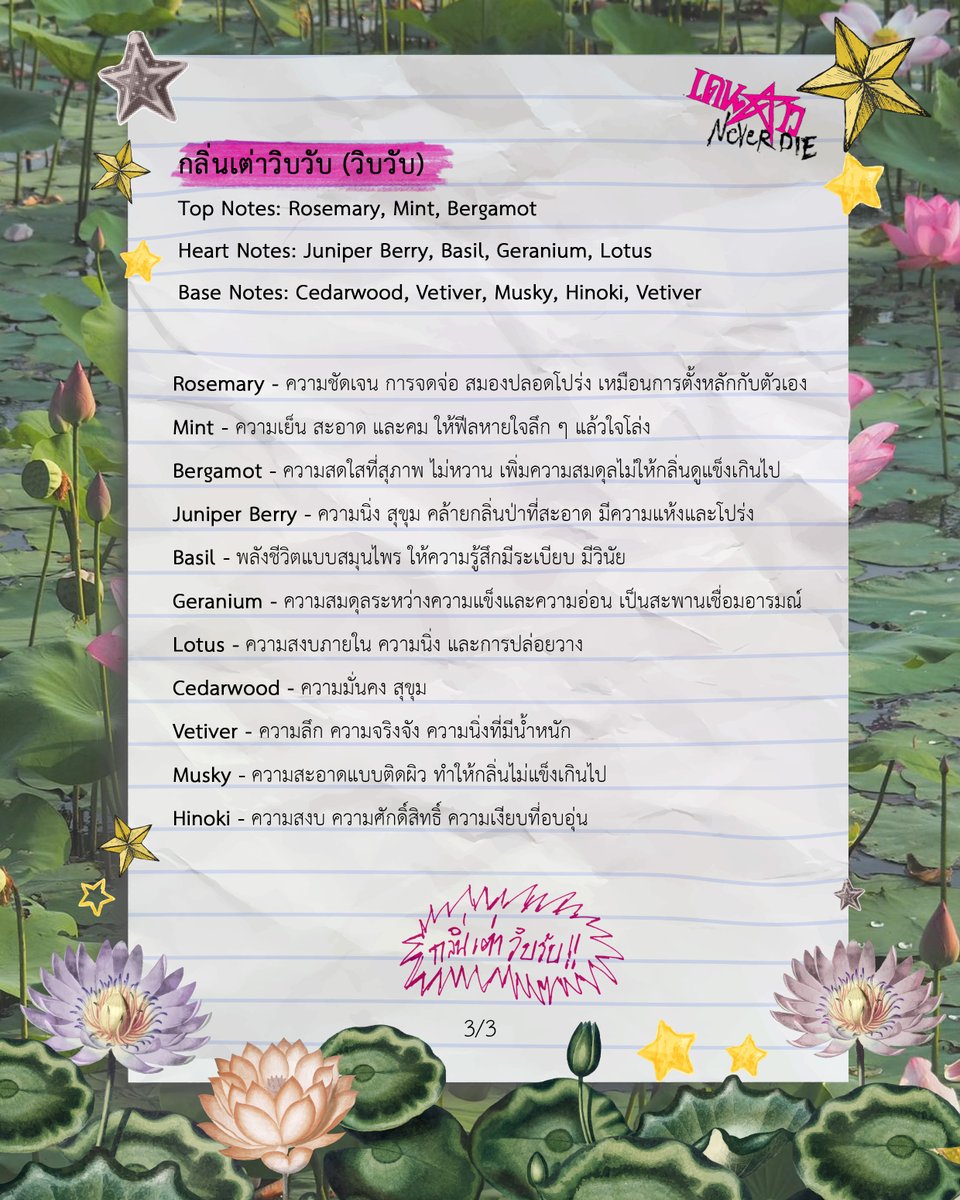 เดนดาว
Never DIE
กลิ่นเต่าวิบวับ (วิบวับ)
Top Notes: Rosemary, Mint, Bergamot
Heart Notes: Juniper Berry, Basil, Geranium, Lotus
Base Notes: Cedarwood, Vetiver, Musky, Hinoki, Vetiver
Rosemary - ความชัดเจน การจดจ่อ สมองปลอดโปร่ง เหมือนการตั้งหลักกับตัวเอง
Mint - ความเย็น สะอาด และคม ให้ฟีลหายใจลึก ๆ แล้วใจโล่ง
Bergamot - ความสดใสที่สุภาพ ไม่หวาน เพิ่มความสมดุลไม่ให้กลิ่นดูแข็งเกินไป
Juniper Berry - ความนิ่ง สุขุม คล้ายกลิ่นป่าที่สะอาด มีความแห้งและโปร่ง
Basil - พลังชีวิตแบบสมุนไพร ให้ความรู้สึกมีระเบียบ มีวินัย
Geranium - ความสมดุลระหว่างความแข็งและความอ่อน เป็นสะพานเชื่อมอารมณ์
Lotus - ความสงบภายใน ความนิ่ง และการปล่อยวาง
Cedarwood - ความมั่นคง สุขุม
Vetiver - ความลึก ความจริงจัง ความนิ่งที่มีน้ำหนัก
Musky - ความสะอาดแบบติดผิว ทำให้กลิ่นไม่แข็งเกินไป
Hinoki - ความสงบ ความศักดิ์สิทธิ์ ความเงียบที่อบอุ่น
กลิ่นเต่าวิบวับ!!
3/3